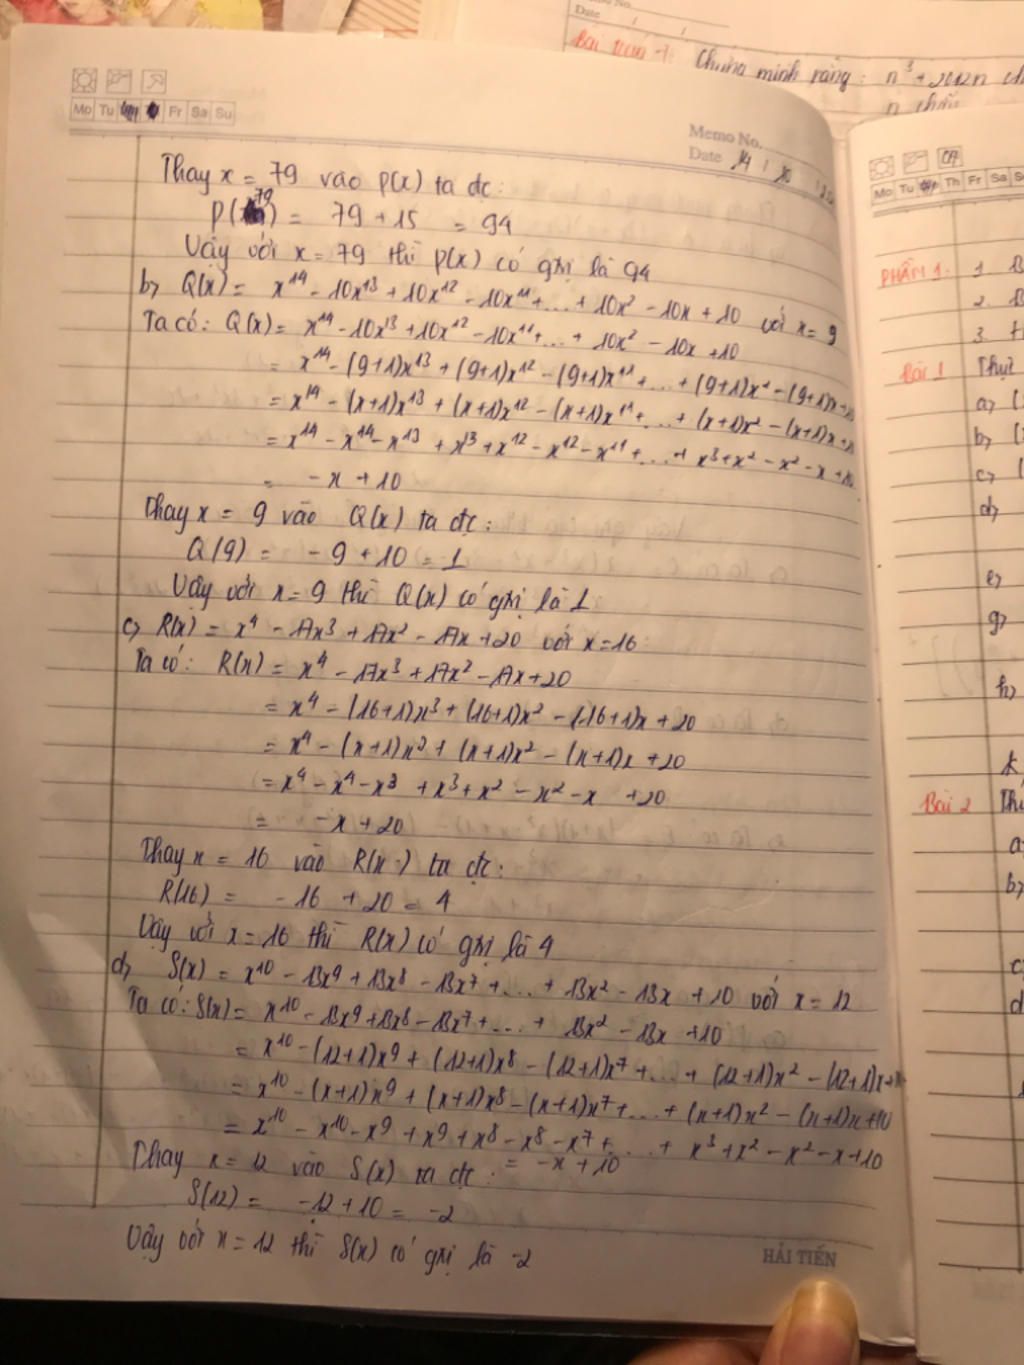 Bài toán 7: Chứng minh rằng: n³ + 2012n
n
Date
Mo Tu Fr Sa Su
Memo No.
Date
Thay x = 79 vào P(x) ta đc:
P(79) = 79 + 15 = 94
Vậy với x = 79 thì P(x) có gtrị là 94
b, Q(x) = x¹⁴ - 10x¹³ + 10x¹² - 10x¹¹ + ... + 10x² - 10x + 10 với x = 9
Ta có: Q(x) = x¹⁴ - 10x¹³ + 10x¹² - 10x¹¹ + ... + 10x² - 10x + 10
= x¹⁴ - (9+1)x¹³ + (9+1)x¹² - (9+1)x¹¹ + ... + (9+1)x² - (9+1)x
= x¹⁴ - (x+1)x¹³ + (x+1)x¹² - (x+1)x¹¹ + ... + (x+1)x² - (x+1)x
= x¹⁴ - x¹⁴ - x¹³ + x¹³ + x¹² - x¹² - x¹¹ + ... + x³ + x² - x² - x + 10
= - x + 10
Thay x = 9 vào Q(x) ta đc:
Q(9) = - 9 + 10 = 1
Vậy với x = 9 thì Q(x) có gtrị là 1
c, R(x) = x⁴ - 17x³ + 17x² - 17x + 20 với x = 16
Ta có: R(x) = x⁴ - 17x³ + 17x² - 17x + 20
= x⁴ - (16+1)x³ + (16+1)x² - (16+1)x + 20
= x⁴ - (x+1)x³ + (x+1)x² - (x+1)x + 20
= x⁴ - x⁴ - x³ + x³ + x² - x² - x + 20
= - x + 20
Thay x = 16 vào R(x) ta đc:
R(16) = - 16 + 20 = 4
Vậy với x = 16 thì R(x) có gtrị là 4
d, S(x) = x¹⁰ - 13x⁹ + 13x⁸ - 13x⁷ + ... + 13x² - 13x + 10 với x = 12
Ta có: S(x) = x¹⁰ - 13x⁹ + 13x⁸ - 13x⁷ + ... + 13x² - 13x + 10
= x¹⁰ - (12+1)x⁹ + (12+1)x⁸ - (12+1)x⁷ + ... + (12+1)x² - (12+1)x
= x¹⁰ - (x+1)x⁹ + (x+1)x⁸ - (x+1)x⁷ + ... + (x+1)x² - (x+1)x + 10
= x¹⁰ - x¹⁰ - x⁹ + x⁹ + x⁸ - x⁸ - x⁷ + ... + x³ + x² - x² - x + 10
= - x + 10
Thay x = 12 vào S(x) ta đc:
S(12) = - 12 + 10 = -2
Vậy với x = 12 thì S(x) có gtrị là -2
HẢI TIẾN
Mo Tu Th Fr Sa
PHẦN 1: 1
2
3
Bài 1
a,
b,
c,
d,
e,
g,
h,
k
Bài 2
a
b,
c
d